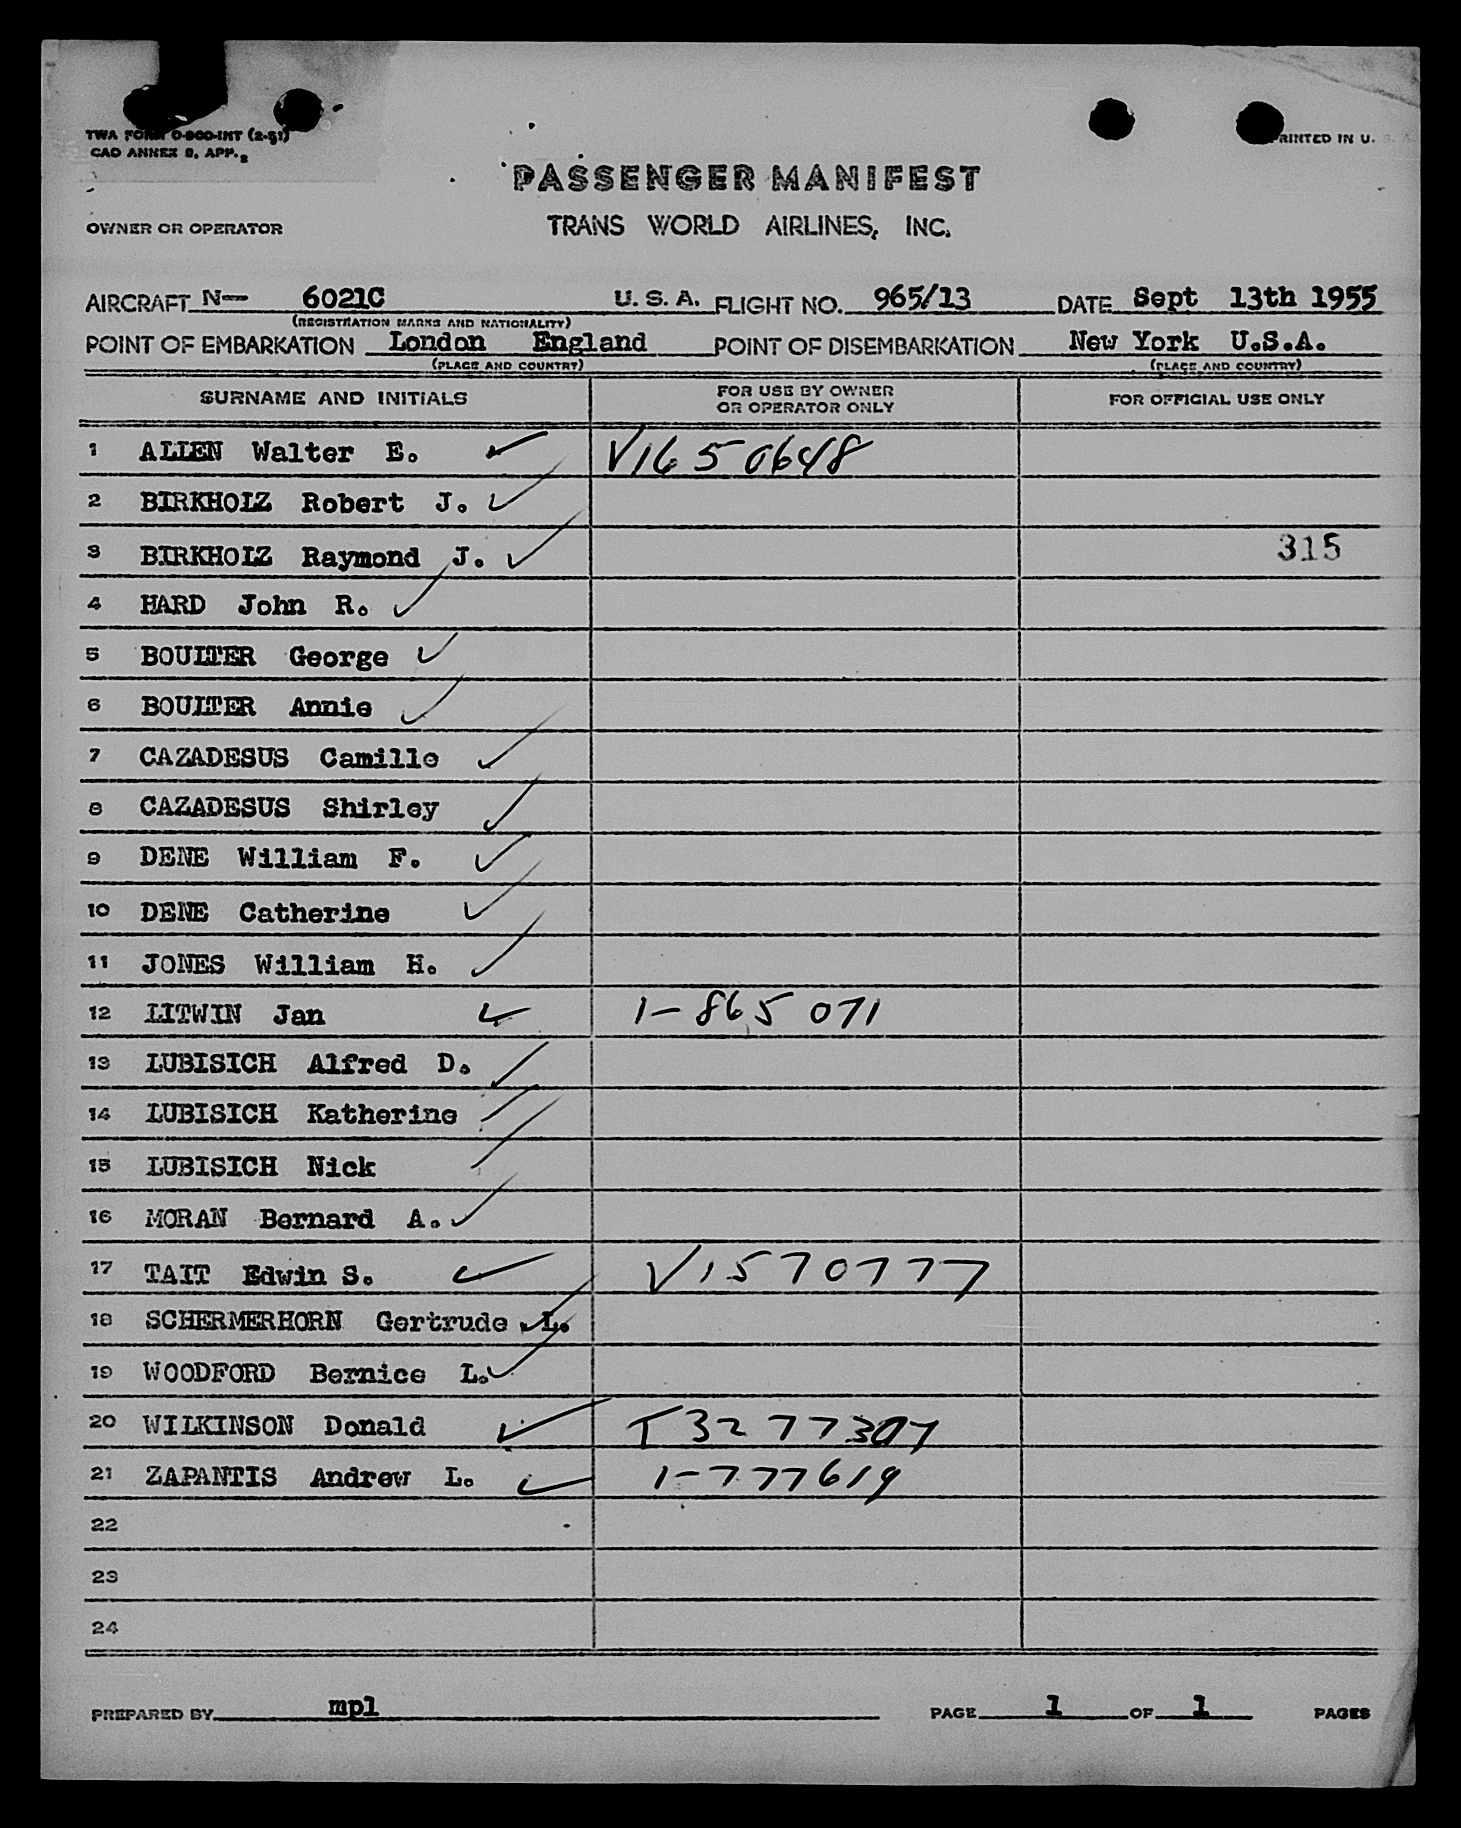 TWA FORM O-800-INT (2-51)
CAO ANNEX 9, APP. 2
PRINTED IN U. S. A.
PASSENGER MANIFEST
OWNER OR OPERATOR
TRANS WORLD AIRLINES, INC.
AIRCRAFT N-- 6021C U. S. A. FLIGHT NO. 965/13 DATE Sept 13th 1955
(REGISTRATION MARKS AND NATIONALITY)
POINT OF EMBARKATION London England POINT OF DISEMBARKATION New York U.S.A.
(PLACE AND COUNTRY) (PLACE AND COUNTRY)
SURNAME AND INITIALS FOR USE BY OWNER OR OPERATOR ONLY FOR OFFICIAL USE ONLY
1 ALLEN Walter E. ✓ V1650648
2 BIRKHOLZ Robert J. ✓
3 BIRKHOLZ Raymond J. ✓ 315
4 HARD John R. ✓
5 BOULTER George ✓
6 BOULTER Annie ✓
7 CAZADESUS Camille ✓
8 CAZADESUS Shirley ✓
9 DENE William F. ✓
10 DENE Catherine ✓
11 JONES William H. ✓
12 LITWIN Jan ✓ 1-865 071
13 LUBISICH Alfred D. ✓
14 LUBISICH Katherine ✓
15 LUBISICH Nick ✓
16 MORAN Bernard A. ✓
17 TAIT Edwin S. ✓ V1570777
18 SCHERMERHORN Gertrude L. ✓
19 WOODFORD Bernice L. ✓
20 WILKINSON Donald ✓
21 ZAPANTIS Andrew L. ✓ 1-777619
22
23
24
PREPARED BY mpl PAGE 1 OF 1 PAGES